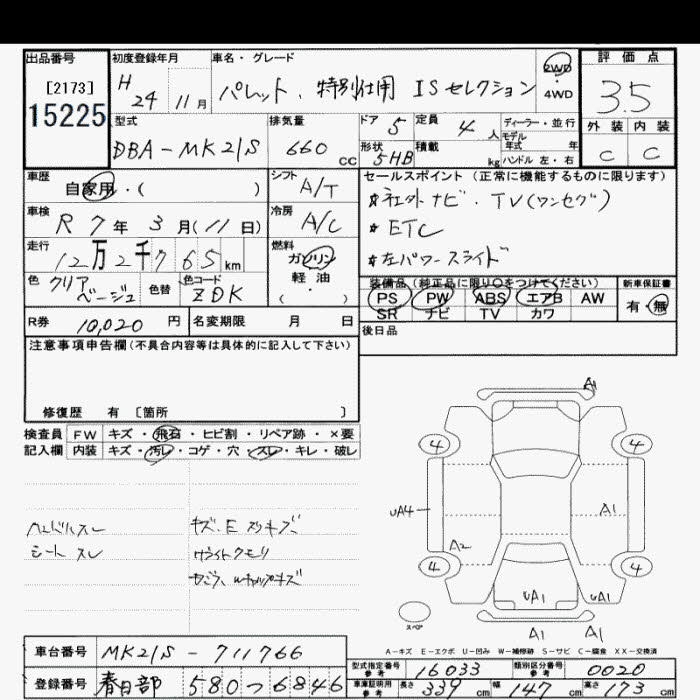 出品番号
[2173]
15225
初度登録年月
H 24年 11月
車名・グレード
パレット、特別仕様 ISセレクション
2WD
・
4WD
評価点
3.5
外装 内装
C C
型式
DBA-MK21S
排気量
660 cc
ドア 5
形状 5HB
定員 4人
積載 kg
ディーラー・並行
モデル年式 年
ハンドル 左・右
車歴
自家用・( )
シフト A/T
車検
R7年3月(11日)
冷房 A/C
走行
12万2千765km
燃料
ガソリン
軽・油
( )
色 クリアベージュ
色替
色コード ZDK
R券 10,020円
名変期限 月 日
セールスポイント(正常に機能するものに限ります)
*社外ナビ・TV(ワンセグ)
*ETC
*左パワースライド
装備品(純正品に限り○をつけてください)
PS PW ABS エアB AW
SR ナビ TV カワ
新車保証書
有・無
後日品
注意事項申告欄(不具合内容等は具体的に記入して下さい)
修復歴 有〔箇所 〕
検査員記入欄
FW キズ・飛石・ヒビ割・リペア跡・×要
内装 キズ・汚レ・コゲ・穴・スレ・キレ・破レ
ハンドルスレ
シート スレ
キズ・E スリキズ
ライトクモリ
WキャップキズA1
4 4
UA4
A1
A2
4 4
UA1 UA1
スペア
A1 A1
A-キズ E-エクボ U-凹み W-補修跡 S-サビ C-腐食 XX-交換済
車台番号 MK21S-711766
登録番号 春日部 580つ6846
型式指定番号 参考 16033
類別区分番号 参考 0020
車庫証明用 参考 長さ 339cm 幅 147cm 高さ 173cm